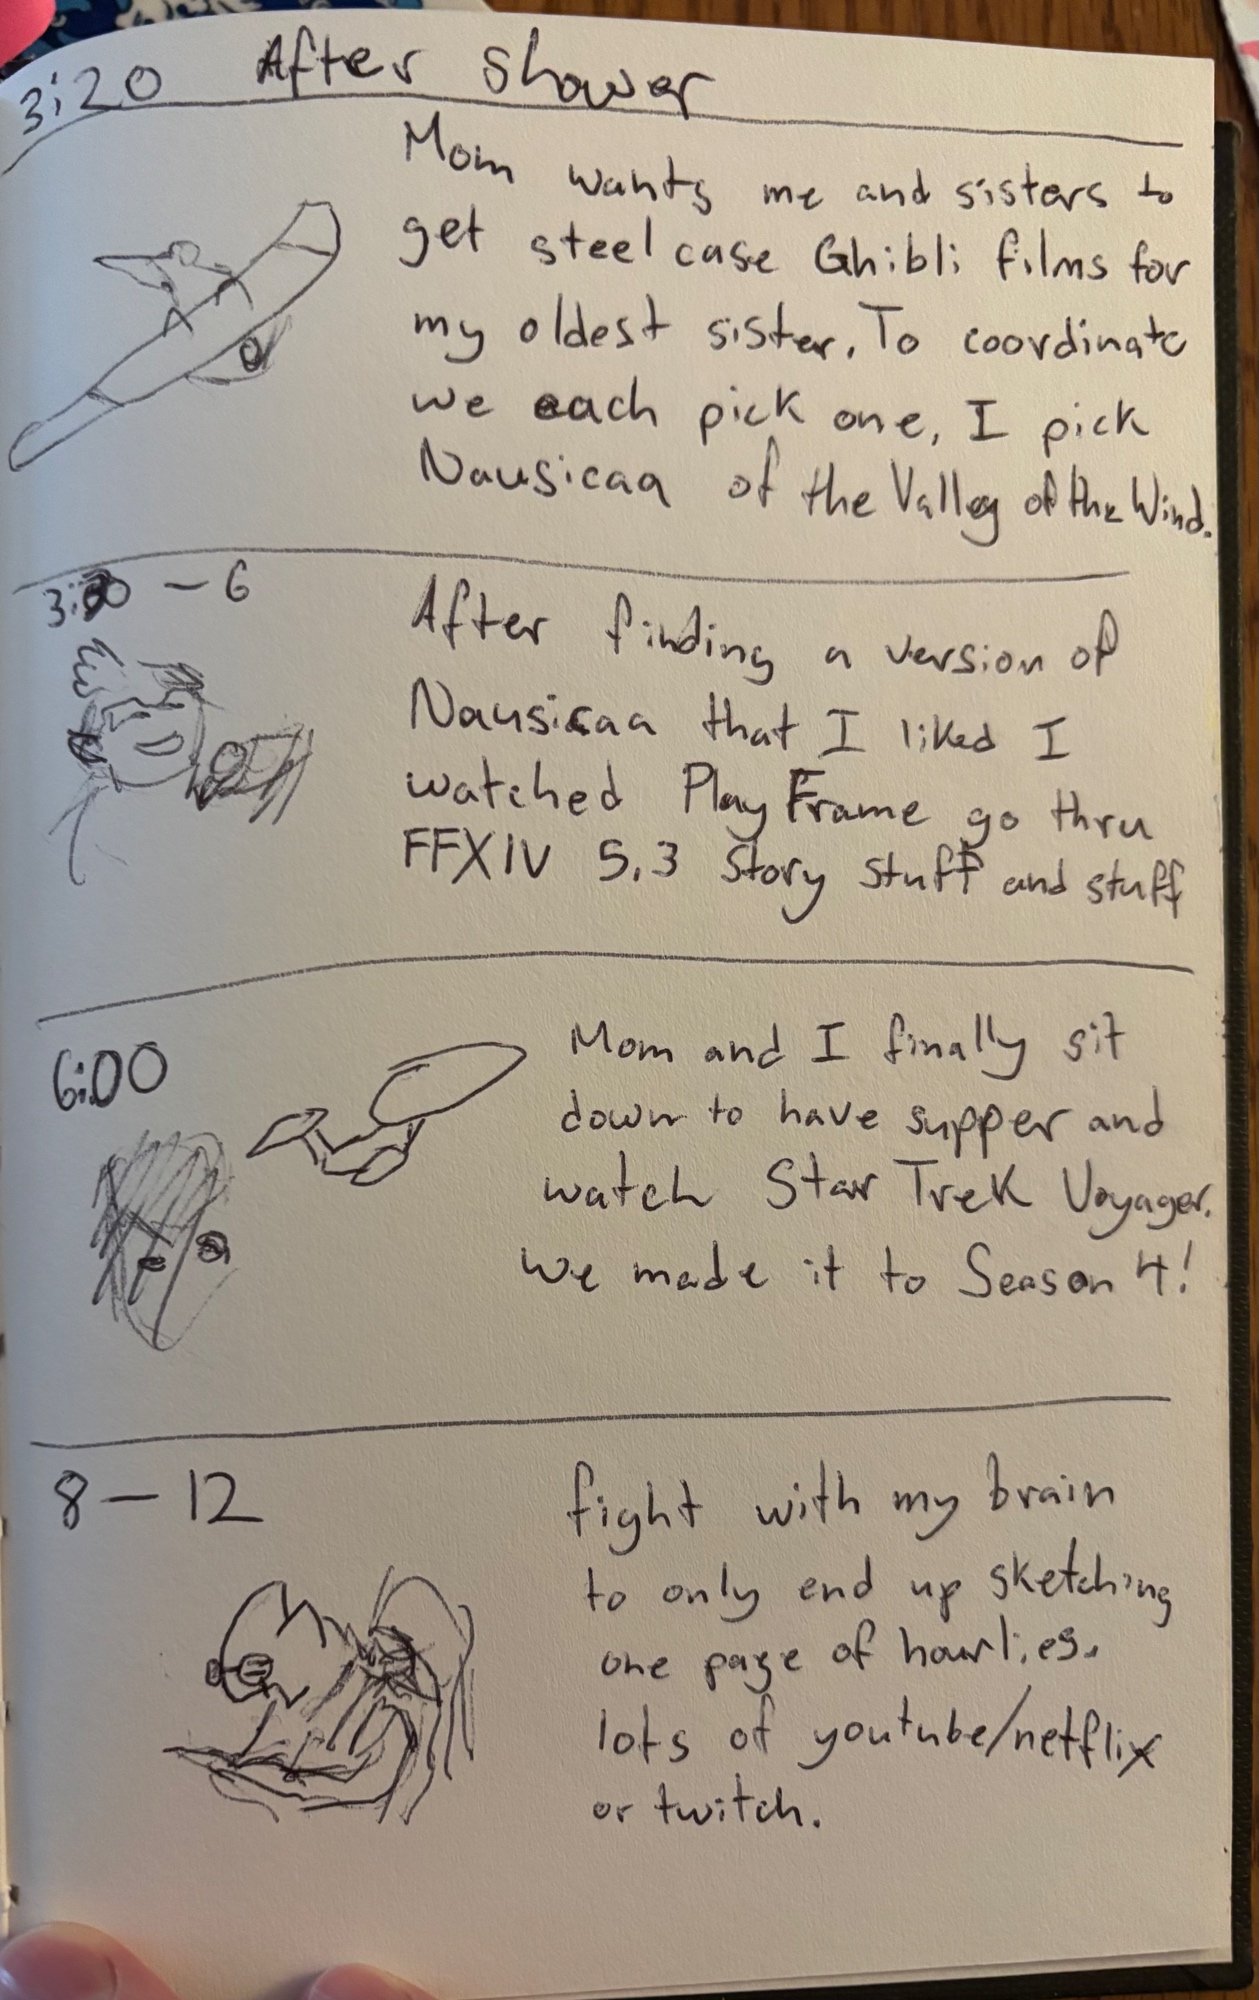 3:20 After shower
Mom wants me and sisters to
get steelcase Ghibli films for
my oldest sister. To coordinate
we each pick one, I pick
Nausicaa of the Valley of the Wind.
- 6
After finding a version of
Nausicaa that I liked I
watched Play Frame go thru
FFXIV 5.3 Story stuff and stuff
6:00
Mom and I finally sit
down to have supper and
watch Star Trek Voyager.
We made it to Season 4!
8 - 12
fight with my brain
to only end up sketching
one page of hourlies.
lots of youtube/netflix
or twitch.